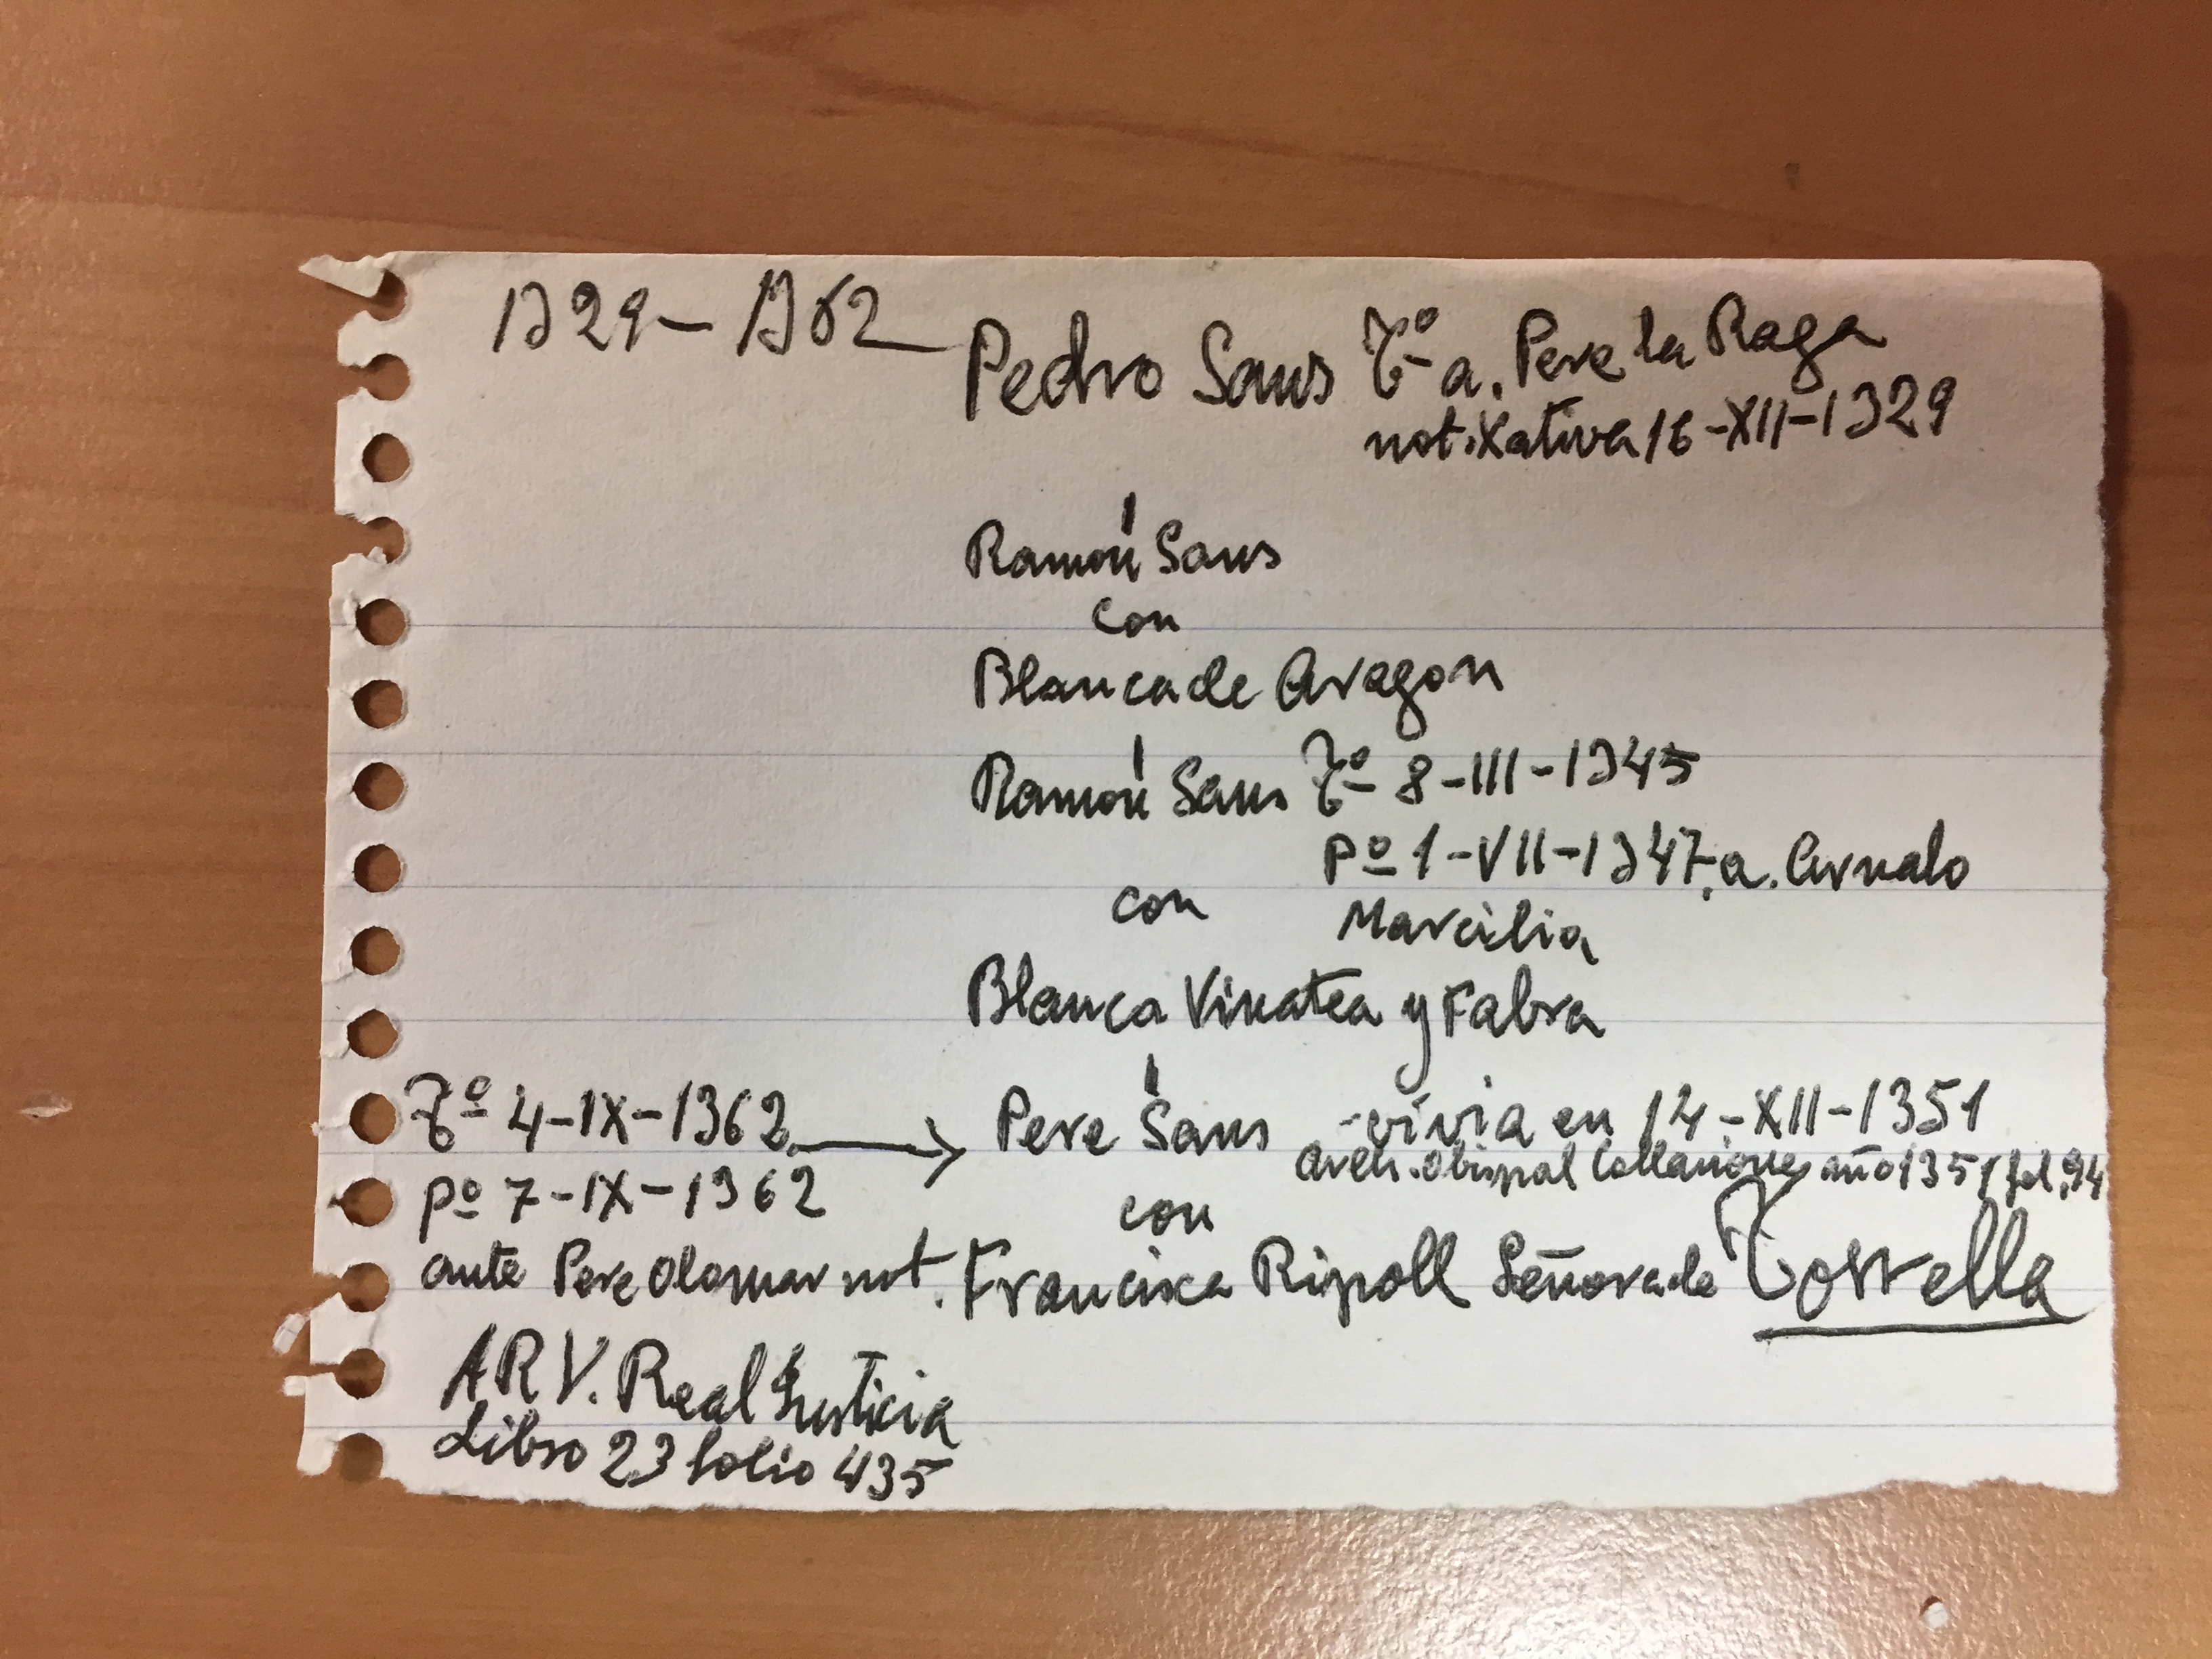 1329 - 1362 - Pedro Sans Tº a. Pere la Raga
not. Xativa 16-XII-1329
Ramón Sans
con
Blanca de Aragon
Ramón Sans Tº 8-III-1345
pº 1-VII-1347, a. Arnalo
con Marcilia
Blanca Vinatea y Fabra
Tº 4-IX-1362 → Pere Sans - vivia en 14-XII-1351
Arch. Obispal Collaciones año 1351 fol. 94
pº 7-IX-1362
con
ante Pere Olomar not. Francisca Ripoll Señora de Torrella
ARV. Real Justicia
Libro 23 folio 435